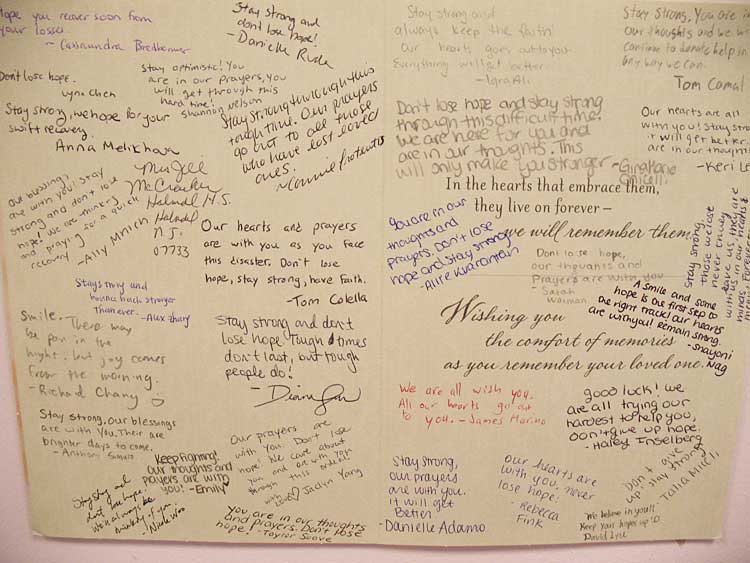 Hope you recover soon from
your losses.
- Cassaundra
Stay strong and
dont lose hope!
- Danielle
Don't lose hope.
Lynn Chen
Stay optimistic! You
are in our prayers, you
will get through this
hard time!
- Shannon Nelson
Stay strong, we hope for your
swift recovery.
Anna Melikhova
Stay strong through this
tough time. Our prayers
go out to all those
who have lost loved
ones.
- Connie
Our blessings
are with you! Stay
strong and don't lose
hope, we are thinking
and praying for a quick
recovery - Ally
Holmdel H.S.
Holmdel
N.J.
07733
Our hearts and prayers
are with you as you face
this disaster. Don't lose
hope, stay strong, have faith.
- Tom Colella
Stay strong and
bounce back stronger
than ever. - Alex
Smile. There may
be pain in the
night, but joy comes
from the morning.
- Richard Chang
Stay strong and don't
lose hope. Tough times
don't last, but tough
people do!
- Diana
Stay strong. Our blessings
are with you. Their are
brighter days to come.
- Anthony
Keep fighting!
our thoughts and
prayers are with
you! - Emily
Our prayers are
with you. Don't lose
hope! We care about
you and are with you
through this ordeal.
Jaclyn Yang
Stay strong and
don't lose hope.
We'll always be
thinking of you.
- Nicole Woo
You are in our thoughts
and prayers. Don't lose
hope! - Taylor
Stay strong and
always keep the faith!
Our hearts goes out to you.
Everything will get better.
- Iqra Ali
Stay Strong. You are in
our thoughts and we will
continue to donate help in
any way we can.
Tom Comal
Don't lose hope and stay strong
through this difficult time.
We are here for you and
are in our thoughts. This
will only make you stronger - Gina Marie
Our hearts are all
with you! Stay strong
it will get better.
are in our thoughts
- Keri
In the hearts that embrace them,
they live on forever –
we will remember them
You are in our
thoughts and
prayers. Don't lose
hope and stay strong
- Allie
Dont lose hope,
our thoughts and
Prayers are with you
- Sarah
Stay strong
those we lose
never truly
leave us, they are
with us in our hearts &
minds, forever
A smile and some
hope is the first step to
the right track! Our hearts
are with you! Remain strong.
- Shayoni
Nag
Wishing you
the comfort of memories
as you remember your loved one.
We are all wish you.
All our hearts go out
to you. - James Marino
good luck! we
are all trying our
hardest to help you,
Don't give up hope.
- Haley Inselberg
Stay strong,
our prayers
are with you.
it will get
Better
- Danielle Adamo
Our hearts are
with you, never
lose hope.
- Rebecca
Fink
Don't give
up! Stay strong
- Talia
We believe in you!!
Keep your hopes up :D
David